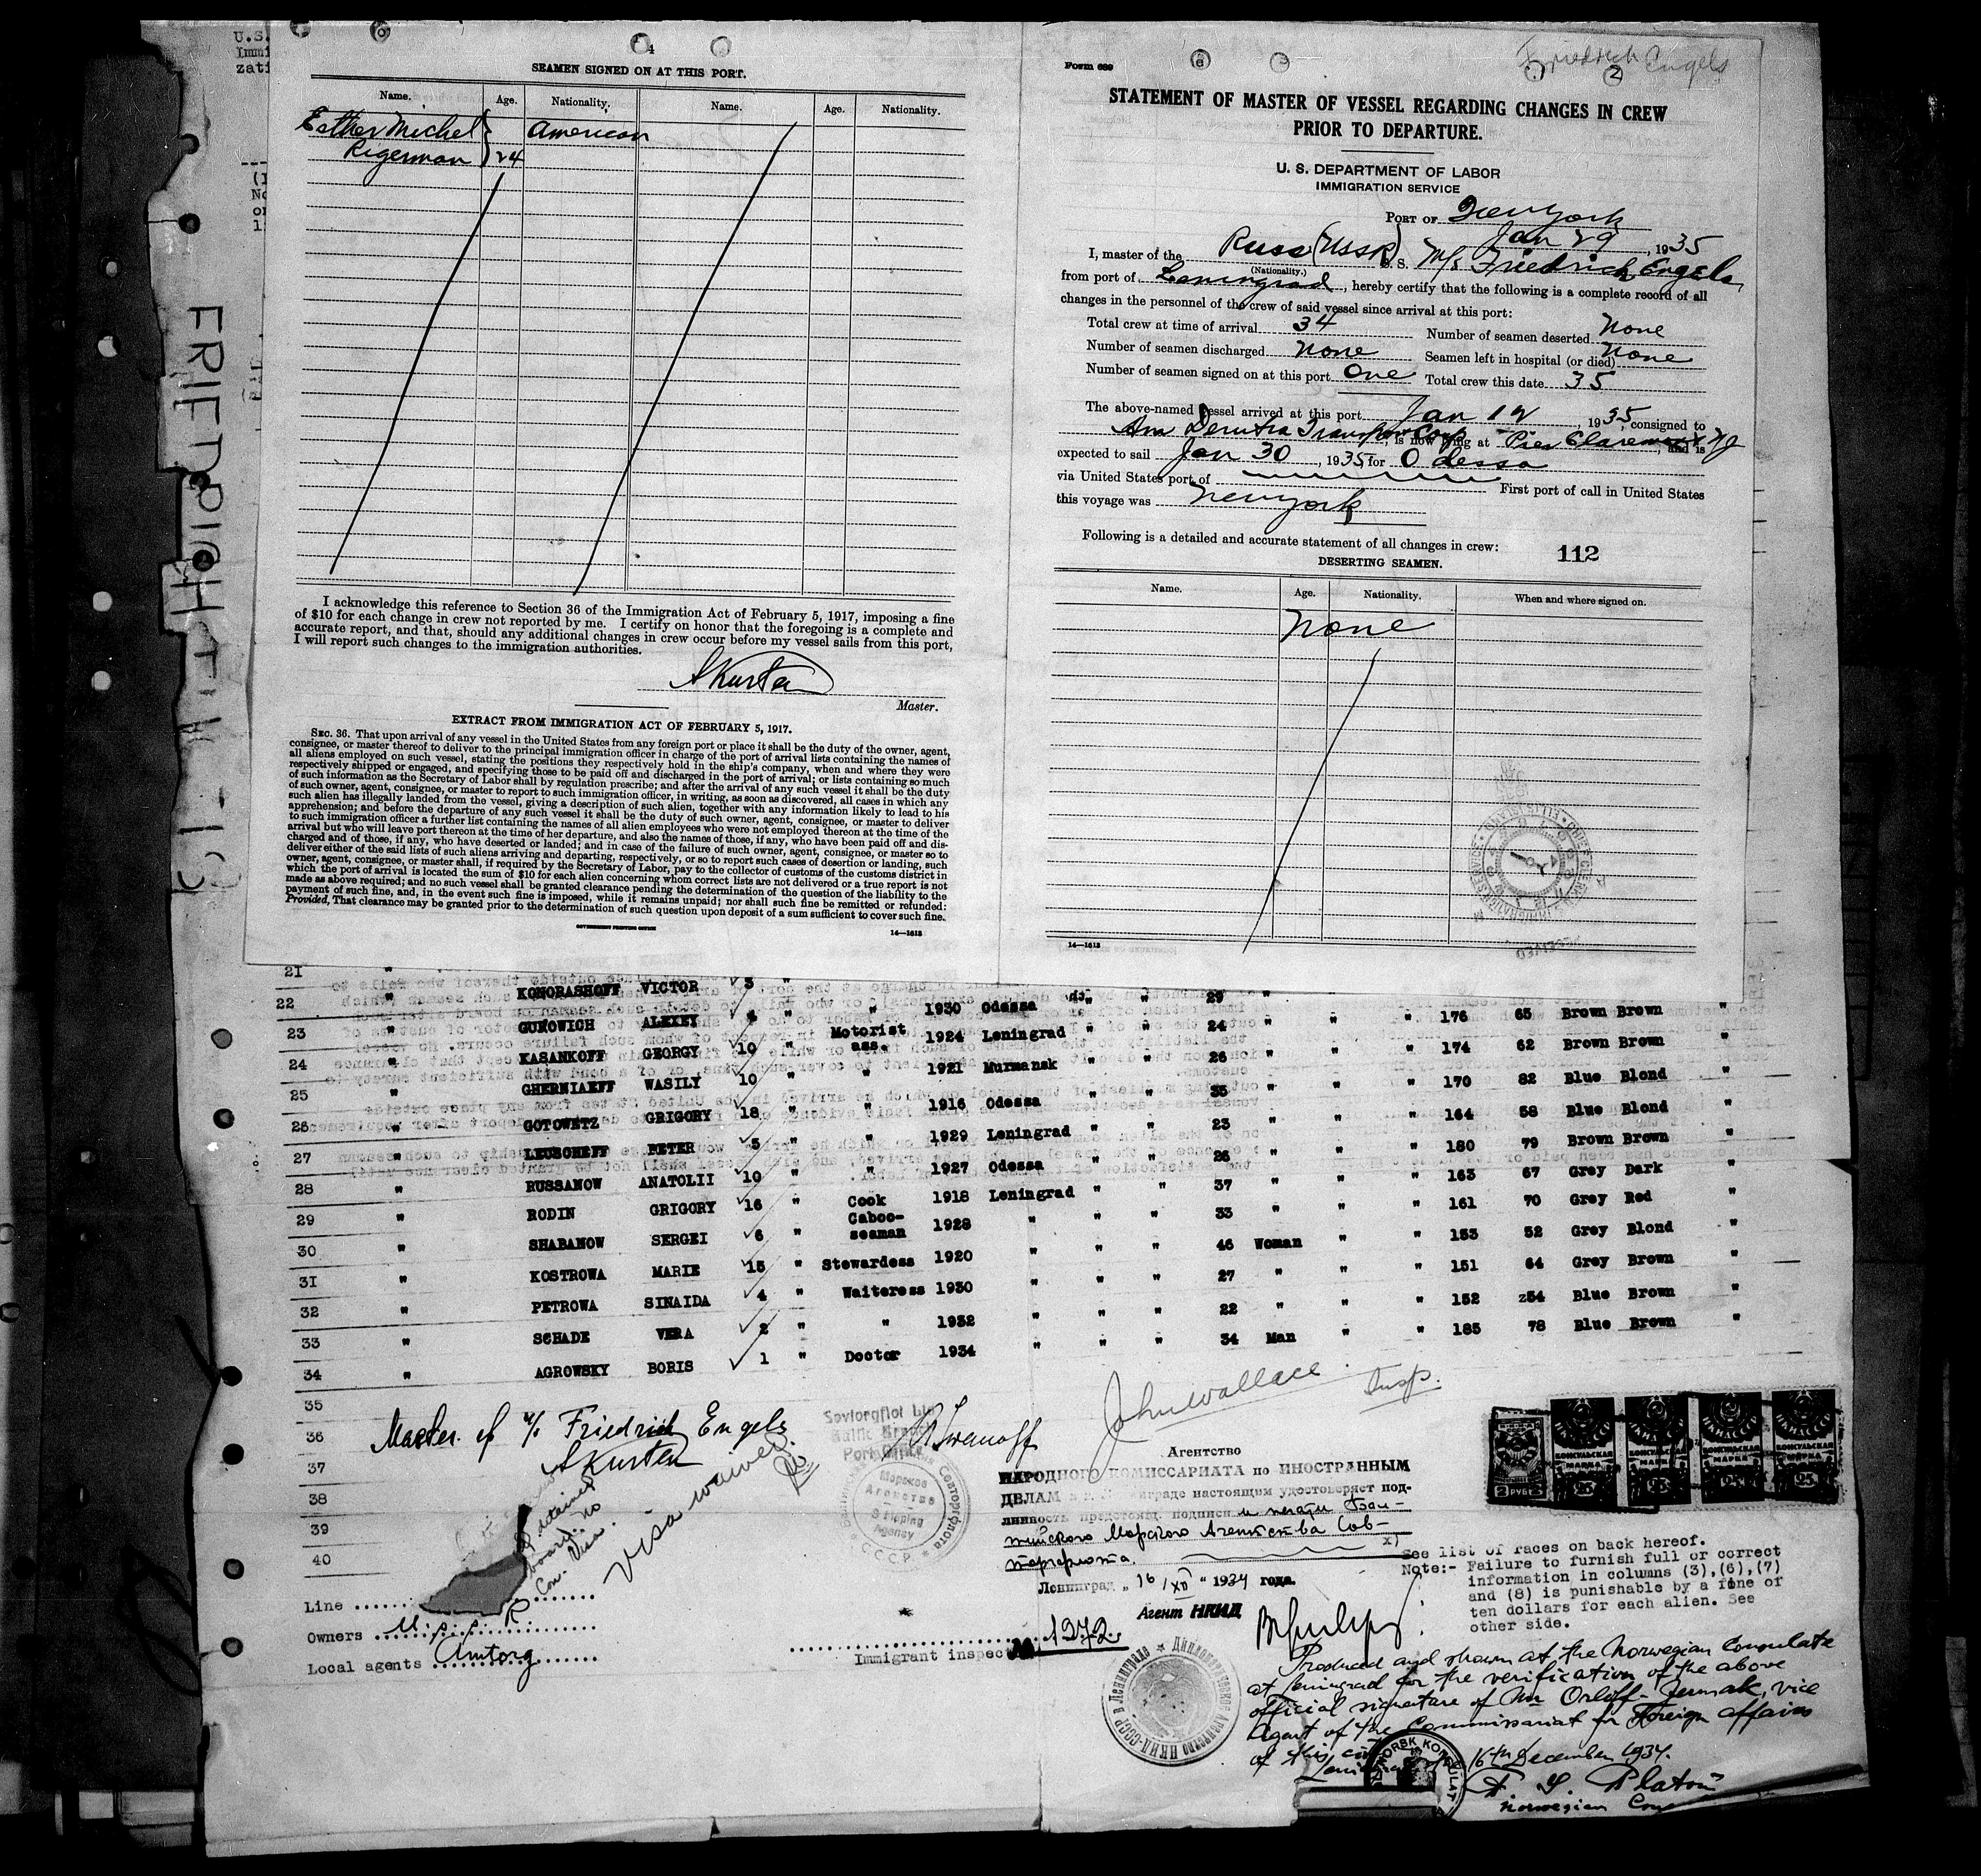 U.S.
Immi
zati
FRIEDRICH
4
SEAMEN SIGNED ON AT THIS PORT.
Name. Age. Nationality. Name. Age. Nationality.
Esther Michel American
Rigerman 24
I acknowledge this reference to Section 36 of the Immigration Act of February 5, 1917, imposing a fine
of $10 for each change in crew not reported by me. I certify on honor that the foregoing is a complete and
accurate report, and that, should any additional changes in crew occur before my vessel sails from this port,
I will report such changes to the immigration authorities.
AKursten
Master.
EXTRACT FROM IMMIGRATION ACT OF FEBRUARY 5, 1917.
SEC. 36. That upon arrival of any vessel in the United States from any foreign port or place it shall be the duty of the owner, agent,
consignee, or master thereof to deliver to the principal immigration officer in charge of the port of arrival lists containing the names of
all aliens employed on such vessel, stating the positions they respectively hold in the ship's company, when and where they were
respectively shipped or engaged, and specifying those to be paid off and discharged in the port of arrival; or lists containing so much
of such information as the Secretary of Labor shall by regulation prescribe; and after the arrival of any such vessel it shall be the duty
of such owner, agent, consignee, or master to report to such immigration officer, in writing, as soon as discovered, all cases in which any
such alien has illegally landed from the vessel, giving a description of such alien, together with any information likely to lead to his
apprehension; and before the departure of any such vessel it shall be the duty of such owner, agent, consignee, or master to deliver
to such immigration officer a further list containing the names of all alien employees who were not employed thereon at the time of the
arrival but who will leave port thereon at the time of her departure, and also the names of those, if any, who have been paid off and dis-
charged and of those, if any, who have deserted or landed; and in case of the failure of such owner, agent, consignee, or master so to
deliver either of the said lists of such aliens arriving and departing, respectively, or so to report such cases of desertion or landing, such
owner, agent, consignee, or master shall, if required by the Secretary of Labor, pay to the collector of customs of the customs district in
which the port of arrival is located the sum of $10 for each alien concerning whom correct lists are not delivered or a true report is not
made as above required; and no such vessel shall be granted clearance pending the determination of the question of the liability to the
payment of such fine, and, in the event such fine is imposed, while it remains unpaid; nor shall such fine be remitted or refunded:
Provided, That clearance may be granted prior to the determination of such question upon deposit of a sum sufficient to cover such fine.
GOVERNMENT PRINTING OFFICE 14—1613
Form 689
Friedrich Engels
2
STATEMENT OF MASTER OF VESSEL REGARDING CHANGES IN CREW
PRIOR TO DEPARTURE.
U. S. DEPARTMENT OF LABOR
IMMIGRATION SERVICE
PORT OF New York
Jan 29, 1935
I, master of the Russ (USSR) S. S. M/s Friedrich Engels,
(Nationality.)
from port of Leningrad, hereby certify that the following is a complete record of all
changes in the personnel of the crew of said vessel since arrival at this port:
Total crew at time of arrival 34 Number of seamen deserted None
Number of seamen discharged None Seamen left in hospital (or died) None
Number of seamen signed on at this port One Total crew this date 35
The above-named vessel arrived at this port Jan 12, 1935 consigned to
Am Derutra Transport Corp, is now lying at Pier Claremont NJ, and is
expected to sail Jan 30, 1935, for Odessa
via United States port of First port of call in United States
this voyage was New York
Following is a detailed and accurate statement of all changes in crew: 112
DESERTING SEAMEN.
Name. Age. Nationality. When and where signed on.
None
14—1613
21 " KONORASHOFF VICTOR 3 " " 1930 Odessa " " 29 " " "
22 " GUKOWICH ALEXEY 4 " Motorist 1924 Leningrad " " 24 " " " 176 65 Brown Brown "
23 " KASANKOFF GEORGY 10 " ass. 1921 Murmansk " " 26 " " " 174 62 Brown Brown "
24 " GHERNIAEFF WASILY 10 " " 1916 Odessa " " 35 " " " 170 82 Blue Blond "
25 " GOTOWETZ GRIGORY 18 " " 1929 Leningrad " " 23 " " " 164 58 Blue Blond "
26 " LEUSCHEFF PETER 5 " " 1927 Odessa " " 26 " " " 180 79 Brown Brown "
27 " RUSSANOW ANATOLII 10 " Cook 1918 Leningrad " " 37 " " " 163 67 Grey Dark "
28 " RODIN GRIGORY 16 " Caboo- 1928 " " " 33 " " " 161 70 Grey Red "
29 " SHABANOW SERGEI 6 " seaman " " " 46 Woman " " 153 52 Grey Blond "
30 " KOSTROWA MARIE 15 " Stewardess 1920 " " " 27 " " " 151 64 Grey Brown "
31 " PETROWA SINAIDA 4 " Waiteress 1930 " " " 22 " " " 152 z54 Blue Brown "
32 " SCHADE VERA 2 " " 1932 " " " 34 Man " " 185 78 Blue Brown "
33 " AGROWSKY BORIS 1 " Doctor 1934
34
35
36
37
38
39
40
Master of m/s Friedrich Engels
AKursten
detained
board no
Con. Visa.
Visa waived.
Sovtorgflot Ltd
Baltic Branch
Port Office
Морское
Агентство
Shipping
Agency
СССР
Iwanoff
John Wallace Insp.
Агентство
НАРОДНОГО КОМИССАРИАТА по ИНОСТРАННЫМ
ДЕЛАМ в г. Ленинграде настоящим удостоверяет под-
линность предстоящ. подписи и печати Бал-
тийского Морского Агентства Сов-
торгфлота.
Ленинград „16/XII" 1934 года.
Агент НКИД
№ 1272
КОНСУЛЬСКАЯ МАРКА
2 РУБ 25 25 25 25
x) See list of races on back hereof.
Note:- Failure to furnish full or correct
information in columns (3),(6),(7)
and (8) is punishable by a fine of
ten dollars for each alien. See
other side.
Line
Owners U.S.S.R.
Local agents Amtorg
Immigrant inspector
Produced and shown at the Norwegian Consulate
at Leningrad for the verification of the above
official signature of Mr Orloff-Jermak, vice
Agent of the Commissariat for Foreign affairs
of this city
Leningrad 16th December 1934.
Platou
Norwegian Con
NORSK KONSULAT